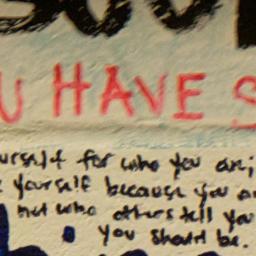 U HAVE S
urself for who you are;
yourself because you a
not who others tell you
you should be.